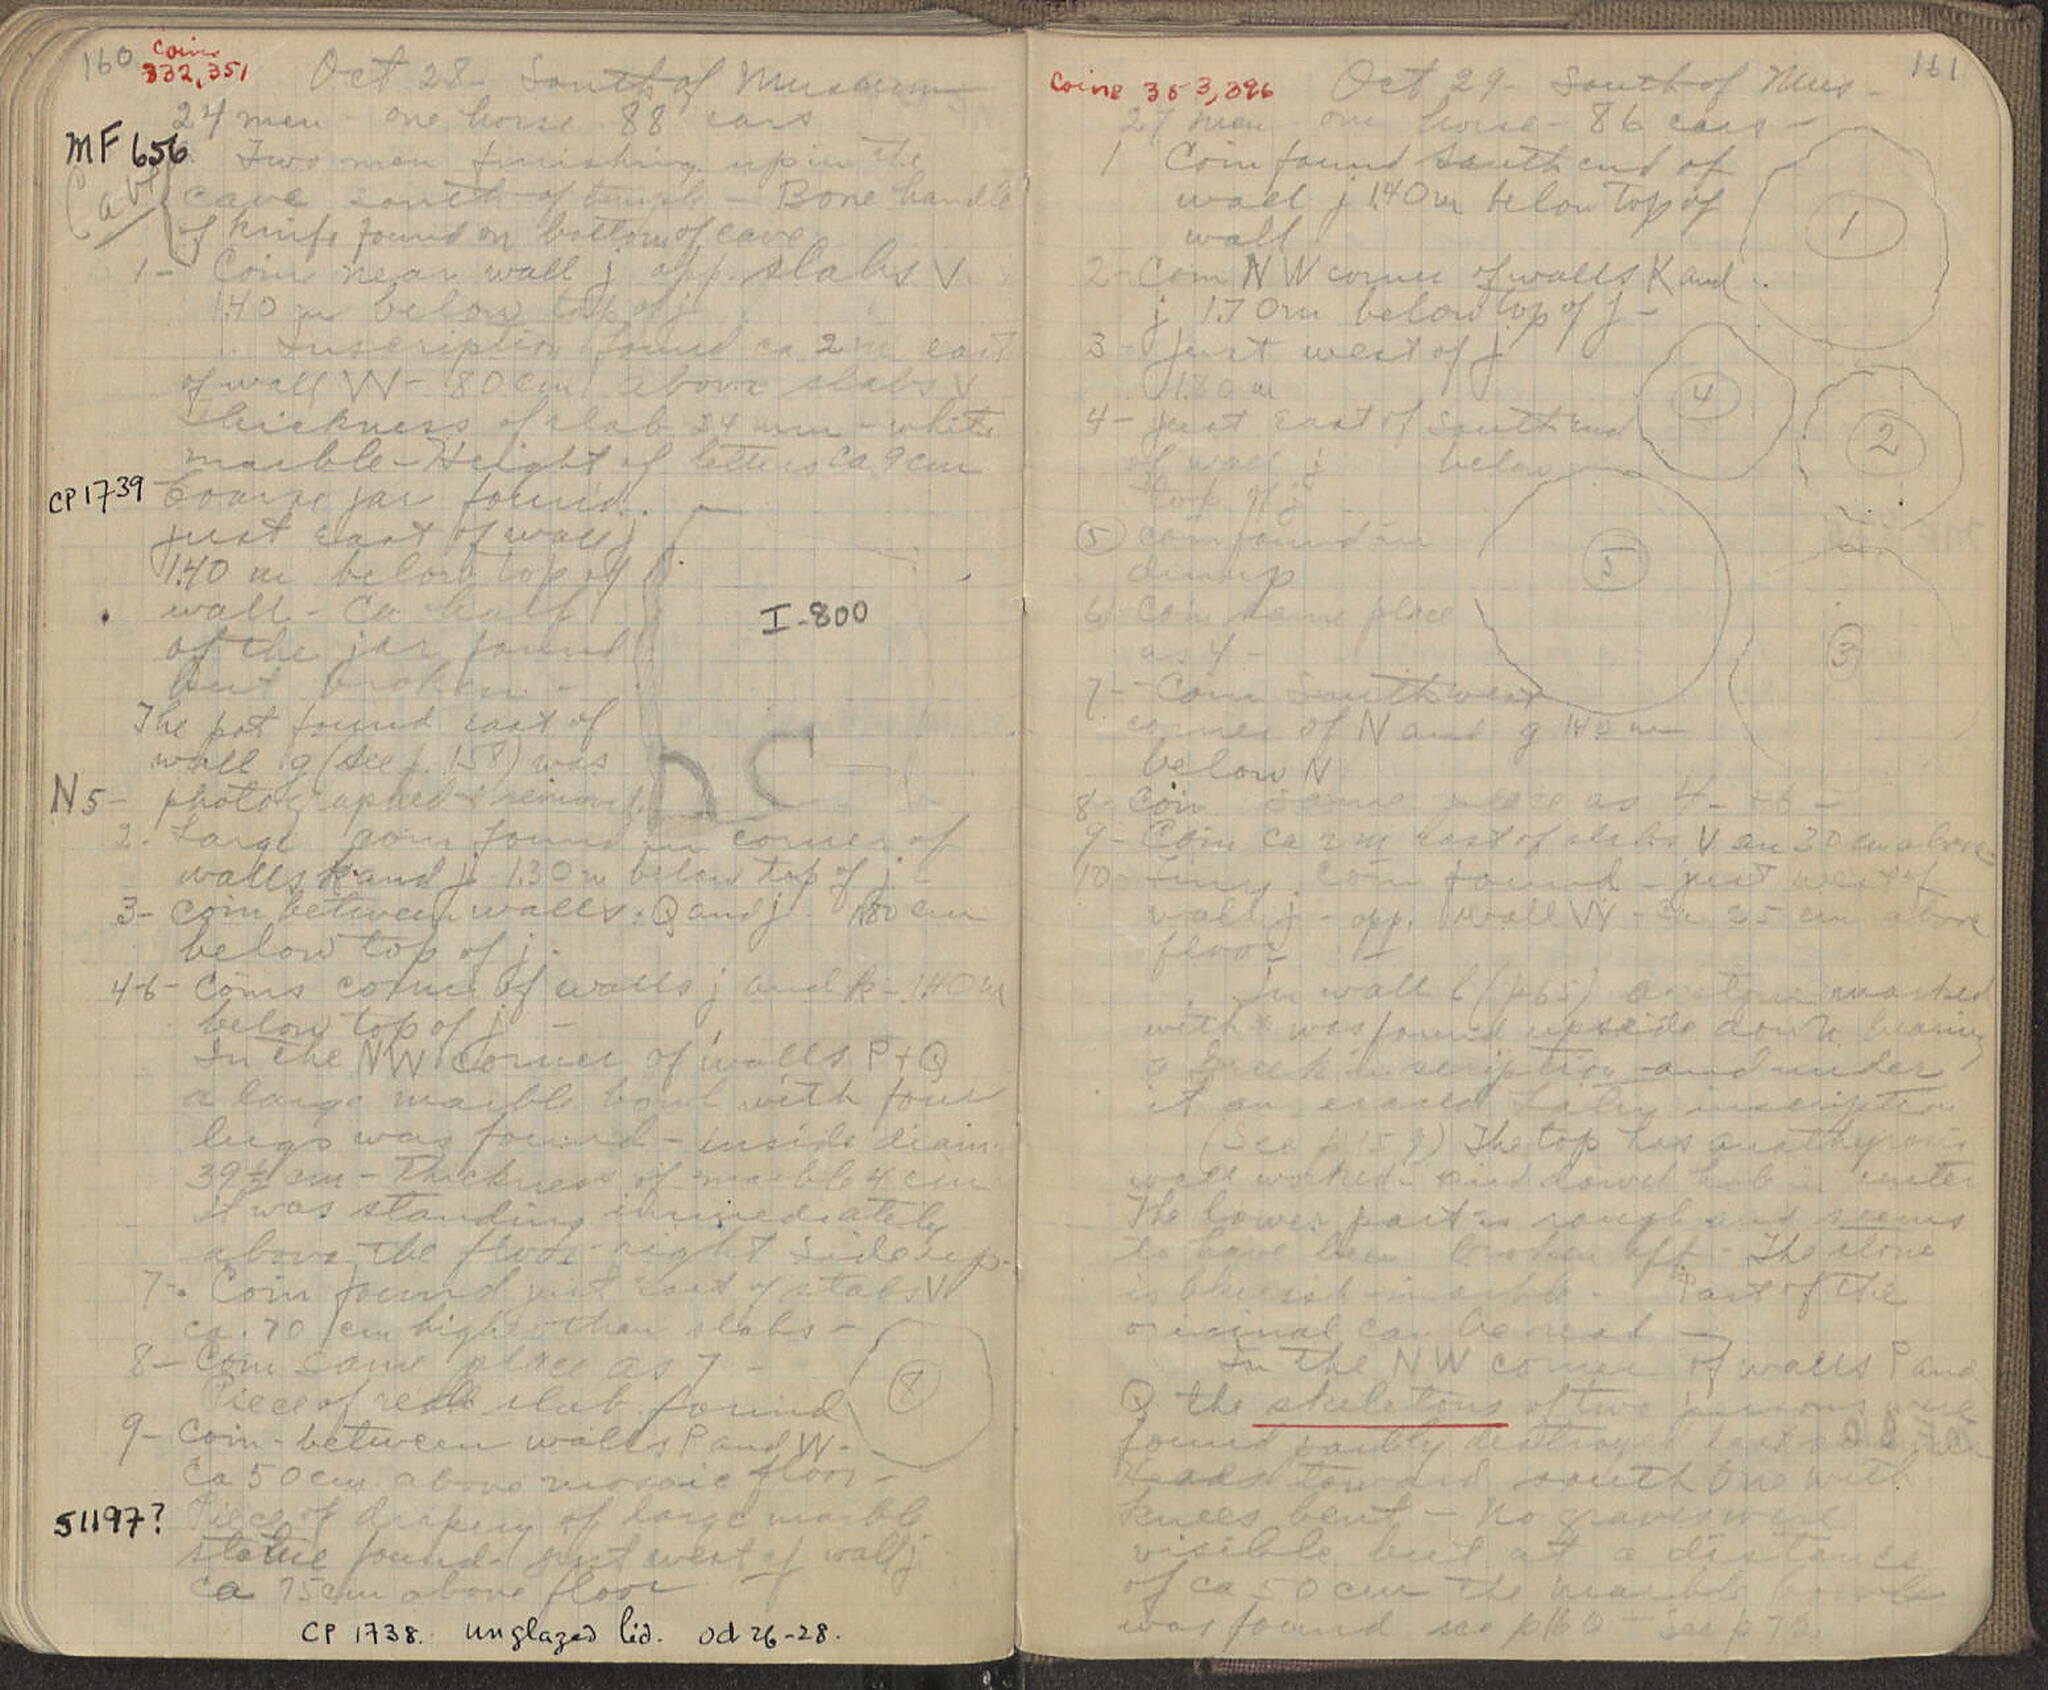 160
Coins
332, 351
Oct 28 - South of Museum
24 men - one horse 88 cars
MF 656
Cave
Two men finishing up in the
cave south of temple - Bone handle
of knife found on bottom of cave
1 - Coin near wall j opp. slabs V.
1.40 m below top of j
Inscription found ca 2 m east
of wall W - 80 cm above slabs V
Thickness of slab 24 mm - white
marble - Height of letters ca 9 cm
CP 1739
Coarse jar found
just east of wall j
1.40 m below top of
wall - Ca half
of the jar found
but broken -
I-800
The pot found east of
wall g (see p. 158) was
N 5 - photographed & removed
2. Large coin found in corner of
walls K and j 1.30 m below top of j -
3 - Coin between walls Q and j - cm
below top of j.
4-6 - Coins corner of walls j and k - 1.40 m
below top of j -
In the NW corner of walls P + Q
a large marble bowl with four
lugs was found - inside diam.
39½ cm - Thickness of marble 4 cm
It was standing immediately
above the floor right side up -
7 - Coin found just east of slabs V
ca. 70 cm higher than slabs -
8 - Coin same place as 7 -
8
Piece of slab found
9 - Coin - between walls P and W -
Ca 50 cm above mosaic floor -
S 1197?
Piece of drapery of large marble
statue found just west of wall j
ca 75 cm above floor
CP 1738. unglazed lid. Oct 26-28.
161
Coins 353, 396
Oct 29 - South of Mus -
27 men one horse - 86 cars -
1 Coin found south end of
wall j 1.40 m below top of
wall
1
2 - Coin NW corner of walls K and
j 1.70 m below top of j -
3 - just west of j
1.80 m
4
2
4 - just east of south end
of wall j below
top of j
5 coin found in
dump
5
6 - Coin same place
as 4 -
3
7 - Coin South west
corner of N and g 1.40 m
below N
8 - Coin same place as 4 - + 6 -
9 - Coin ca 2 m east of slabs V an 30 cm above
10 - Tiny coin found - just west of
wall j - opp. wall W - ca 25 cm above
floor
In wall l (p 65) a stone marked
with x was found upside down bearing
a Greek inscription and under
it an erased Latin inscription
(See p 159) The top has anathyrosis
well worked - and dowel hole in center
The lower part is rough and seems
to have been broken off - The stone
is blueish marble - Part of the
original can be read -
In the NW corner of walls P and
Q the skeletons of two persons were
found partly destroyed
Heads toward south One with
knees bent - No graves were
visible but at a distance
of ca 50 cm the marble bowl
was found see p 160 - See p 72.